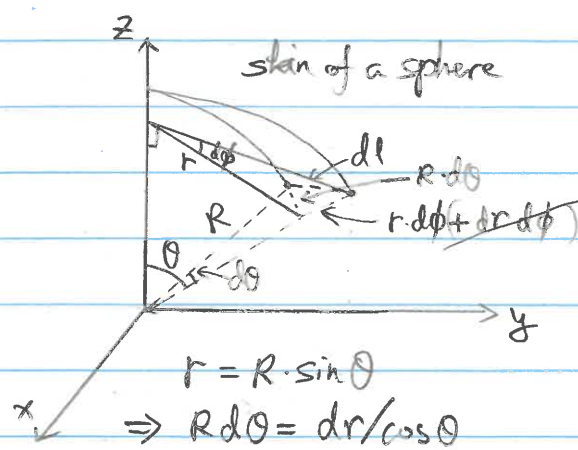 z
skin of a sphere
dφ
r
dl
R·dθ
R
r·dφ(+dr dφ)
θ
dθ
y
r = R·sinθ
x
⇒ Rdθ = dr/cosθ